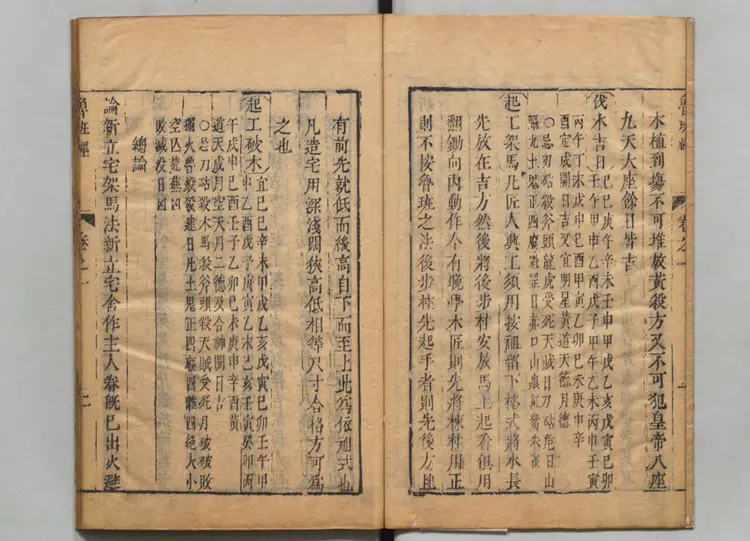 魯班經
卷之一
一
木植到塲不可堆放黃殺方又不可犯皇帝八座
九天大座餘日皆吉
伐木吉日
己巳庚午辛未壬申甲戌乙亥戊寅己卯
壬午甲申乙酉戊子甲午乙未丙申壬寅
丙午丁未戊申己酉甲寅乙卯己未庚申辛
酉定成開日吉又宜明星黃道天德月德
○忌刀砧殺斧頭龍虎受死天賊日刀砧危日山
隔九土鬼正四廢魁罡日赤口山痕紅觜朱雀
起工架馬凡匠人興工須用按祖留下格式將水長
先放在吉方然後將後步柱安放馬上起看俱用
翻鋤向內動作今有晚學木匠則先將棟柱用正
則不按魯班之法後步柱先起手者則先後方且
有前先就低而後高自下而至上此為依祖式也
凡造宅用深淺闊狹高低相等尺寸合格方可為
之也
起工破木
宜己巳辛未甲戌乙亥戊寅己卯壬午甲
申乙酉戊子庚寅乙未己亥壬寅癸卯丙
午戊申己酉壬子乙卯己未庚申辛酉黃
道天成月空天月二德及合神開日吉
○忌刀砧殺木馬殺斧頭殺天賊受死月破破敗
獨火魯般殺建日九土鬼正四廢四離四絕大小
空凶荒蕪凶
敗滅没日凶
總論
論新立宅架馬法新立宅舍作主人眷既已出火避
魯班經
卷之一
二